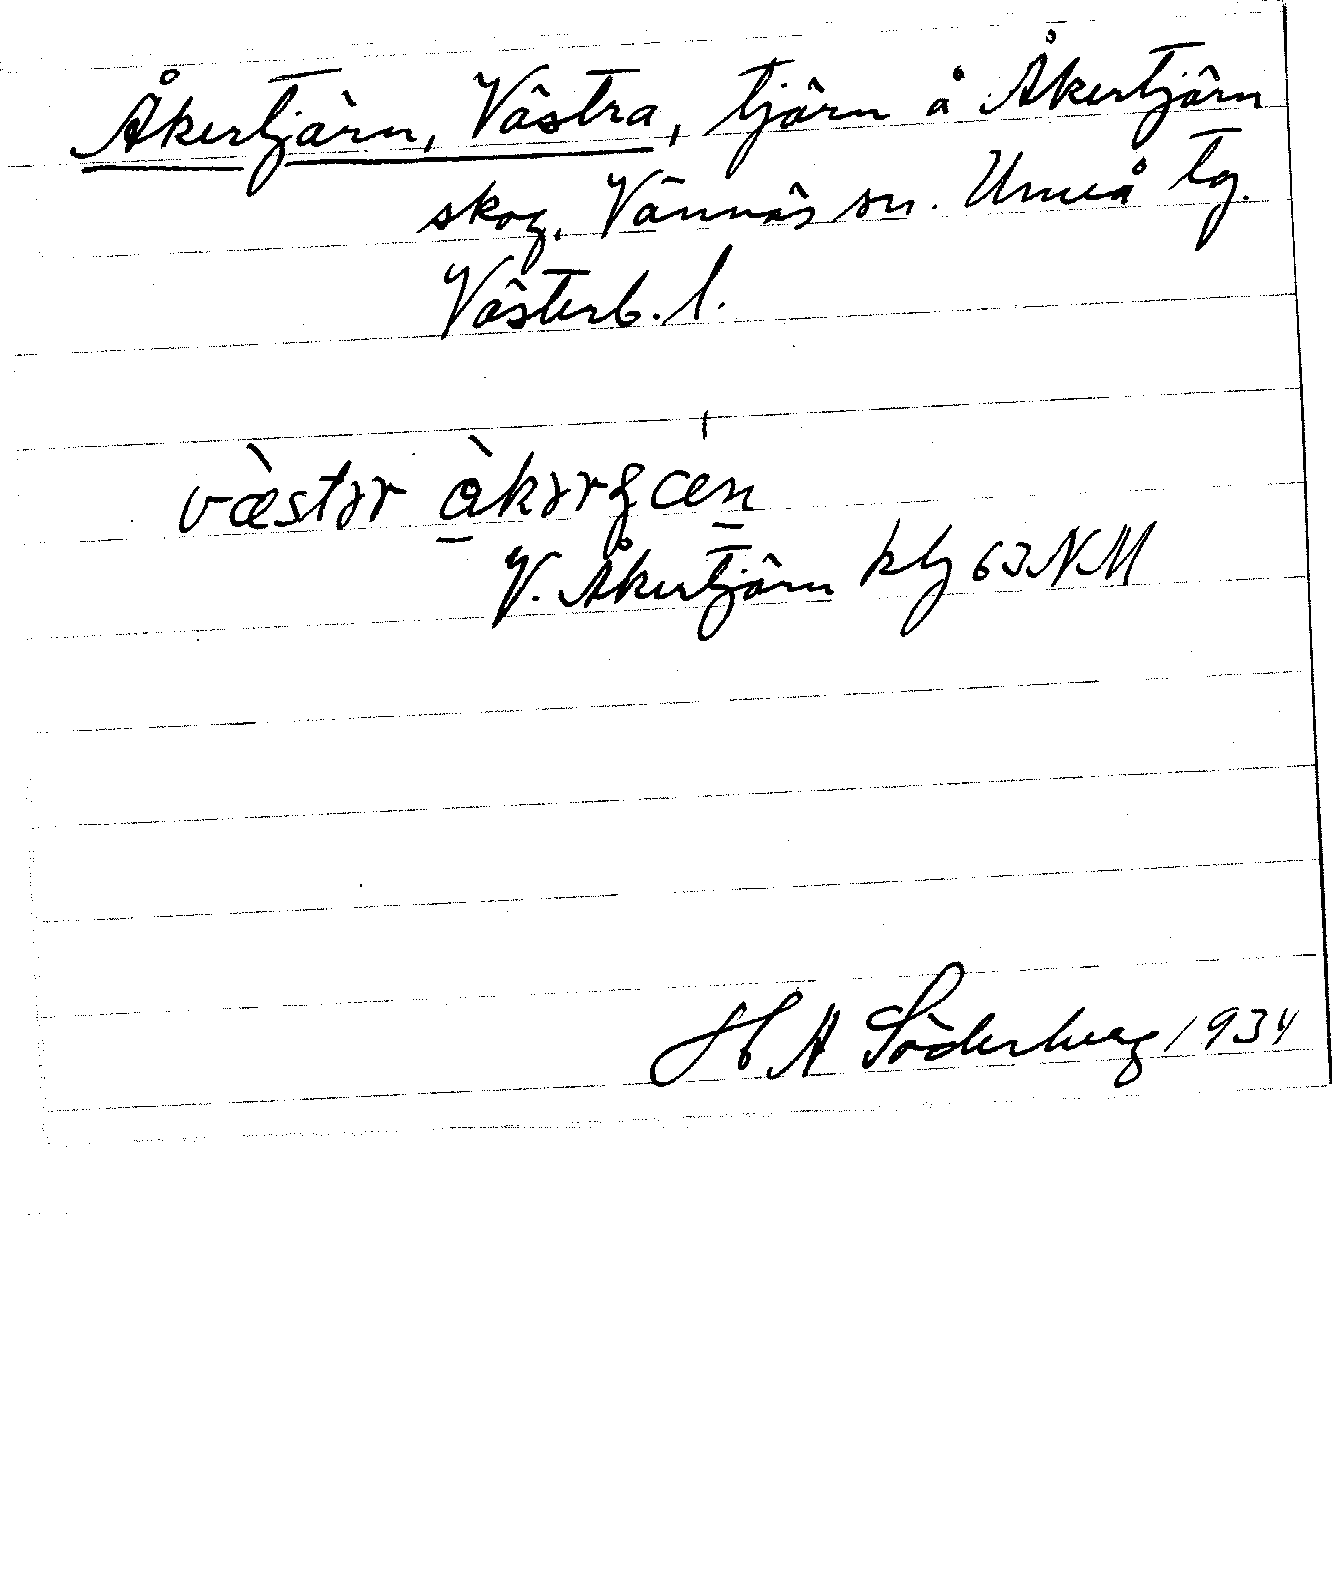 Åkertjärn, Västra, tjärn å Åkertjärn
skog. Vännäs sn. Umeå tg.
Västerb. l.
væ̀stər å̀kərʒæn
V. Åkertjärn kbl 63 NM
H A Söderberg 1934